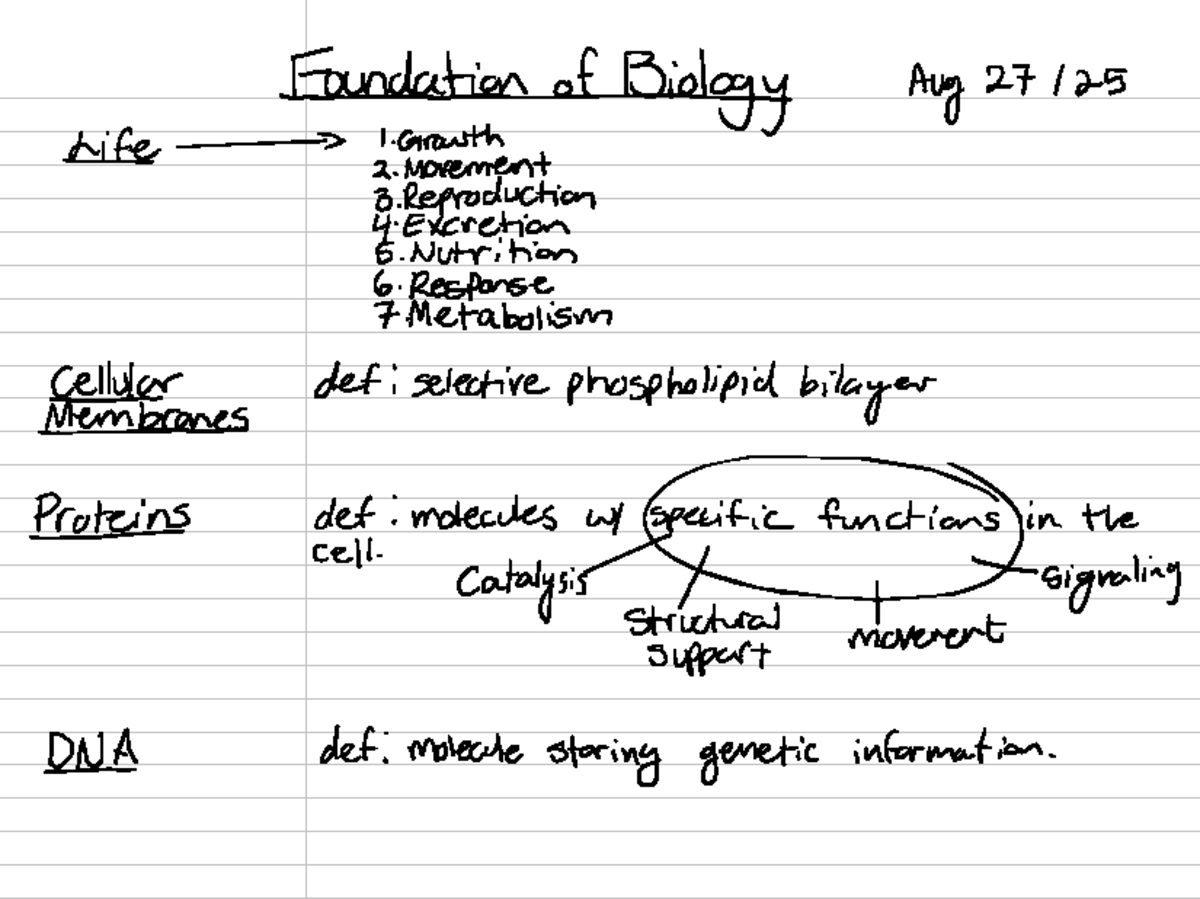 Foundation of Biology Aug 27 / 25
Life → 1. Growth
2. Movement
3. Reproduction
4. Excretion
5. Nutrition
6. Response
7. Metabolism
Cellular def: selective phospholipid bilayer
Membranes
Proteins def: molecules w/ specific functions in the
cell.
Catalysis signaling
Structural movement
support
DNA def: molecule storing genetic information.